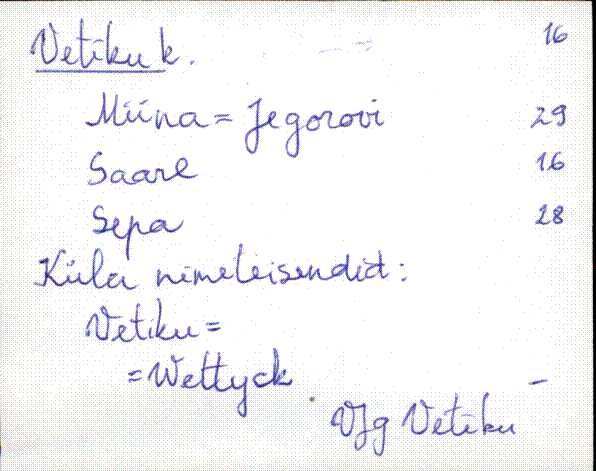 Vetiku k. 16
Miina = Jegorovi 29
Saare 16
Sepa 28
Küla nimeteisendid:
Vetiku =
= Wettyck -
VJg Vetiku